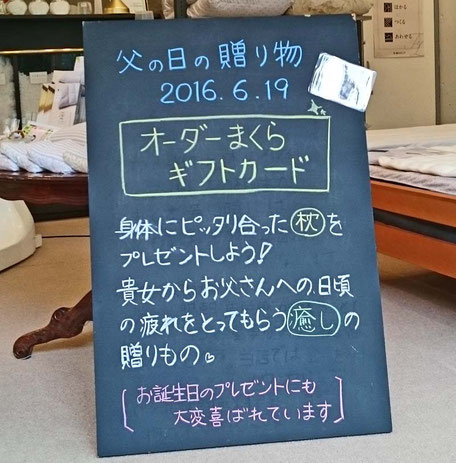 父の日の贈り物
2016.6.19
オーダーまくら
ギフトカード
身体にピッタリ合った枕を
プレゼントしよう!
貴女からお父さんへの、日頃
の疲れをとってもらう癒しの
贈りもの。
[お誕生日のプレゼントにも
大変喜ばれています]
はかる
つくる
あわせる